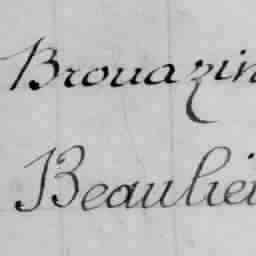 Brouazin
Beaulieu